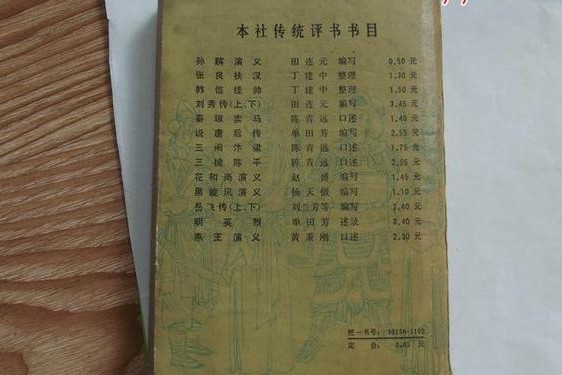 本社传统评书书目
孙膑演义 田连元 编写 0.50元
张良扶汉 丁建中 整理 1.90元
韩信挂帅 丁建中 整理 1.50元
刘秀传(上、下) 田连元 编写 3.45元
秦琼卖马 陈青远 口述 1.40元
说唐后传 单田芳 编写 2.55元
三闹汴梁 陈青远 口述 1.75元
三搅陈平 陈青远 口述 2.55元
花和尚演义 赵博 编写 1.45元
黑旋风演义 杨天微 编写 1.10元
岳飞传(上、下) 刘兰芳等 编写 2.40元
明英烈 单田芳 述录 2.40元
燕王演义 黄秉刚 口述 2.30元
统一书号: 10158·1103
定价: 3.05元